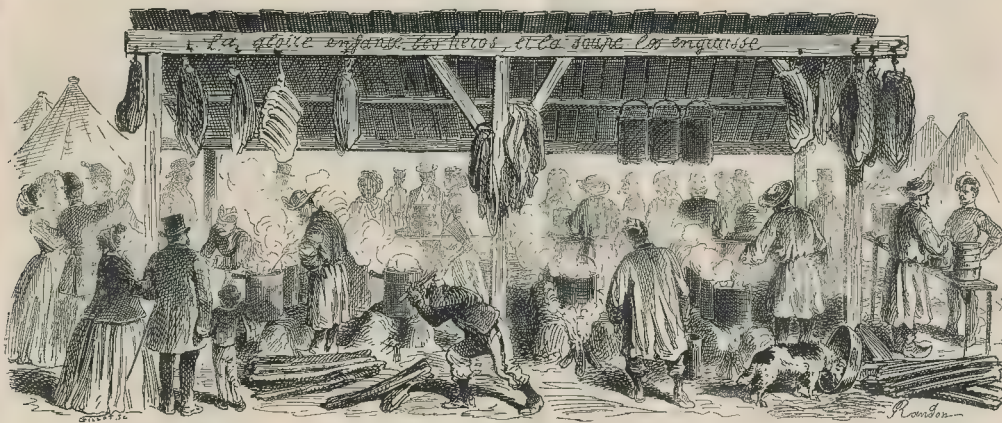 La gloire enfante les heros, et la soupe les engraisse
GILLOT Sc
Randon